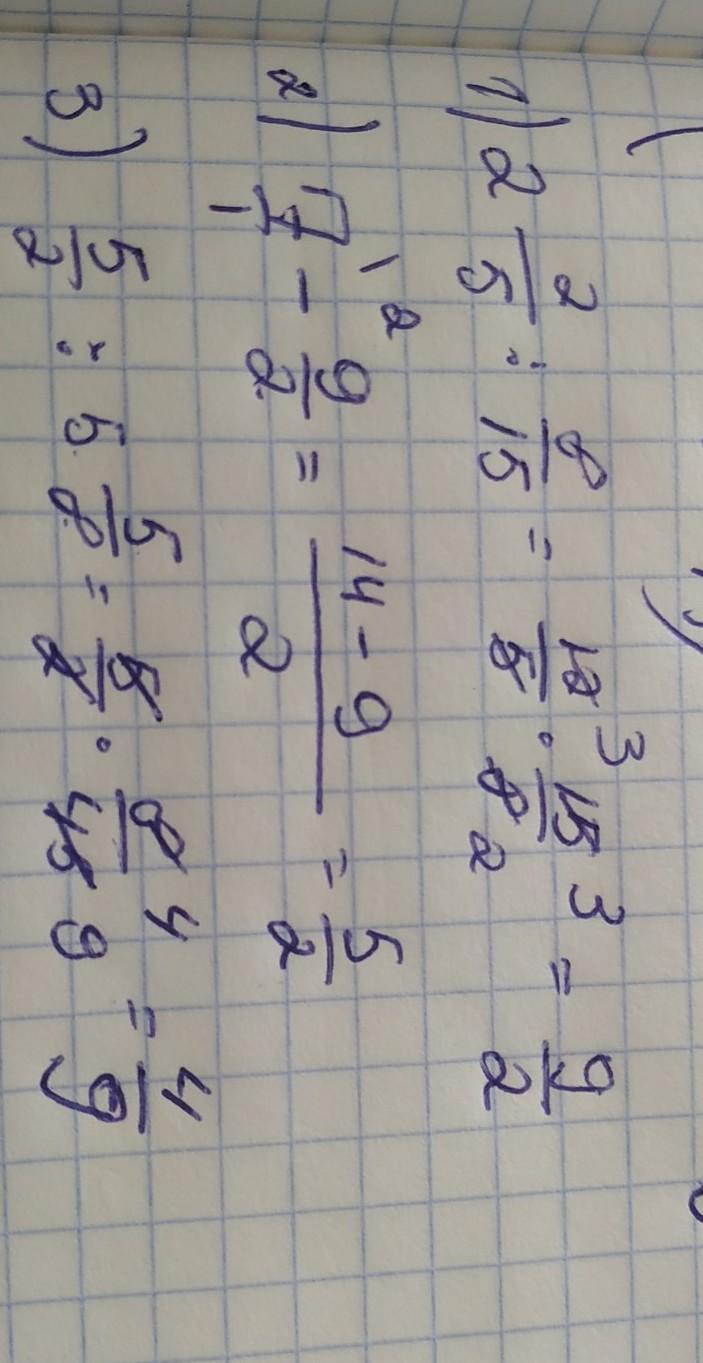 1) 2 2/5 : 8/15 = 12/5 3 · 15/8 3/2 = 9/2
2) 7/1 \2 - 9/2 = 14-9/2 = 5/2
3) 5/2 : 5 5/8 = 5/2 · 8/45 4/9 = 4/9